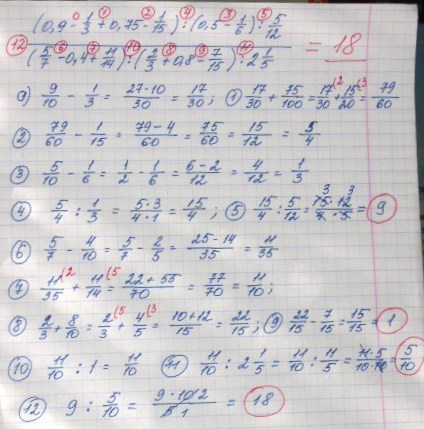 (0,9 - 1/3 + 0,75 - 1/15) : (0,5 - 1/6) : 5/12
0 1 2 4 3 5
12 = 18
(5/7 - 0,4 + 11/14) : (2/3 + 0,8 - 7/15) : 2 1/5
6 7 10 8 9 11
0) 9/10 - 1/3 = 27-10/30 = 17/30; 1) 17/30 + 75/100 = 17/30 (2 + 15/20 (3 = 79/60
2) 79/60 - 1/15 = 79-4/60 = 75/60 = 15/12 = 5/4
3) 5/10 - 1/6 = 1/2 - 1/6 = 6-2/12 = 4/12 = 1/3
4) 5/4 : 1/3 = 5·3/4·1 = 15/4; 5) 15/4 : 5/12 = 15·12/4·5 3 3 = 9
6) 5/7 - 4/10 = 5/7 - 2/5 = 25-14/35 = 11/35
7) 11/35 (2 + 11/14 (5 = 22+55/70 = 77/70 = 11/10;
8) 2/3 + 8/10 = 2/3 (5 + 4/5 (3 = 10+12/15 = 22/15; 9) 22/15 - 7/15 = 15/15 = 1
10) 11/10 : 1 = 11/10 11) 11/10 : 2 1/5 = 11/10 : 11/5 = 11·5/10·10 = 5/10
12) 9 : 5/10 = 9·10 2/5 1 = 18